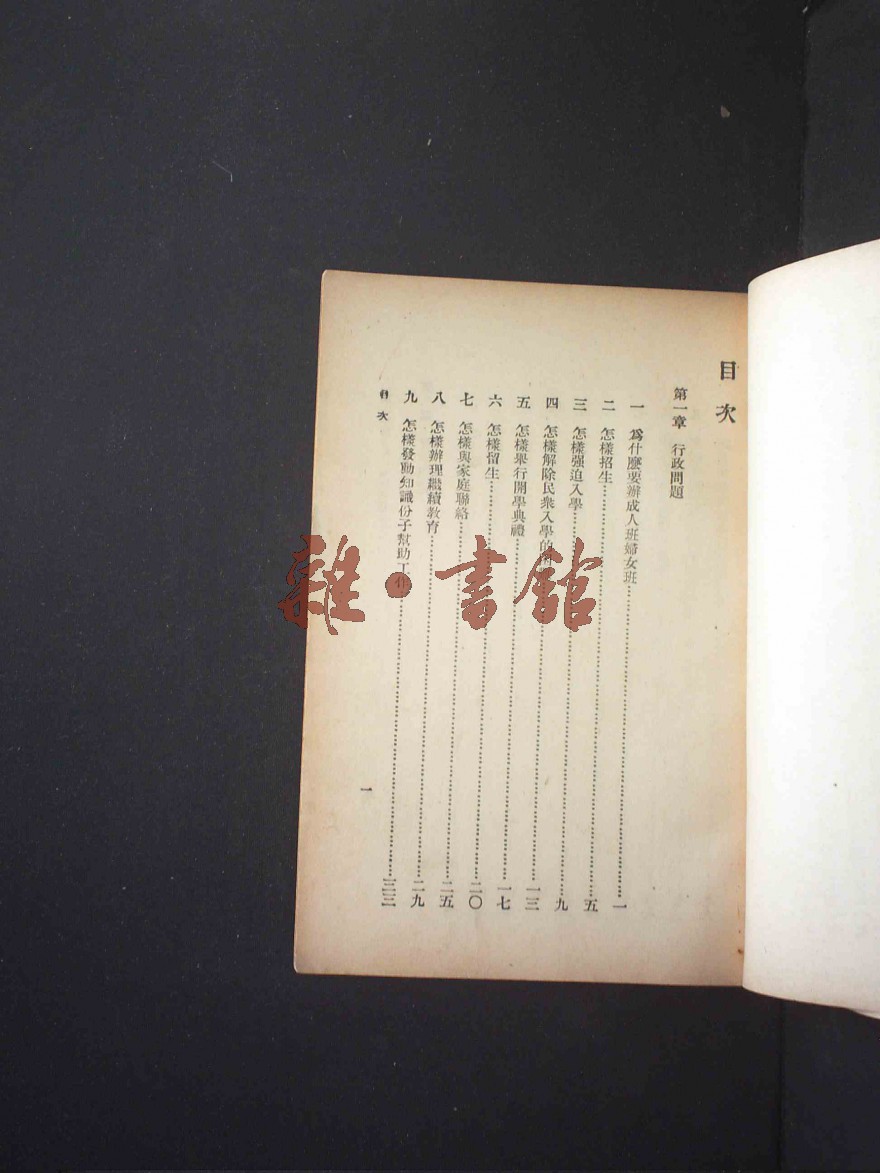 目次
第一章 行政問題
一 爲什麼要辦成人班婦女班……一
二 怎樣招生……五
三 怎樣强迫入學……九
四 怎樣解除民衆入學的……一三
五 怎樣舉行開學典禮……一七
六 怎樣留生……二〇
七 怎樣與家庭聯絡……二五
八 怎樣辦理繼續教育……二九
九 怎樣發動知識份子幫助工作……三三
目次
一
雜·書館